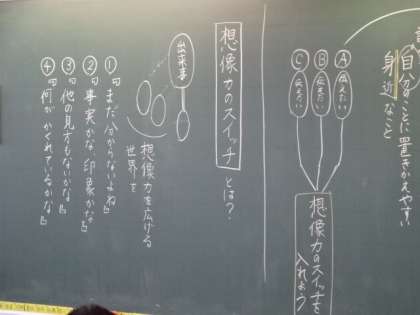 自分のことに置きかえやすい
身近なこと
Ⓐ 伝えたい
Ⓑ 伝えたい
Ⓒ 伝えたい
想像力のスイッチを
入れよう
想像力のスイッチ とは?
出来事
想像力を広げる
世界を
①『まだ分からないよね』
②『事実かな、印象かな』
③『他の見方もないかな』
④『何がかくれているかな』